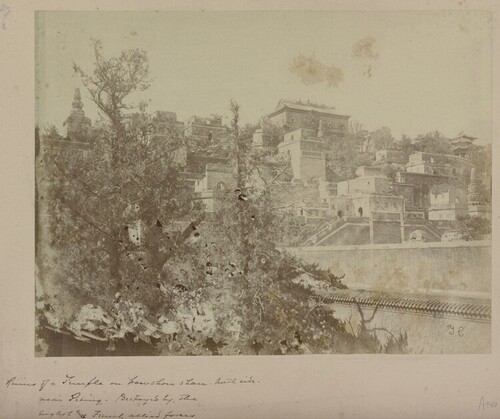 Ruins of a Temple on Wanshou shan. North side.
near Peking. Destroyed by the
English & French allied forces
TC